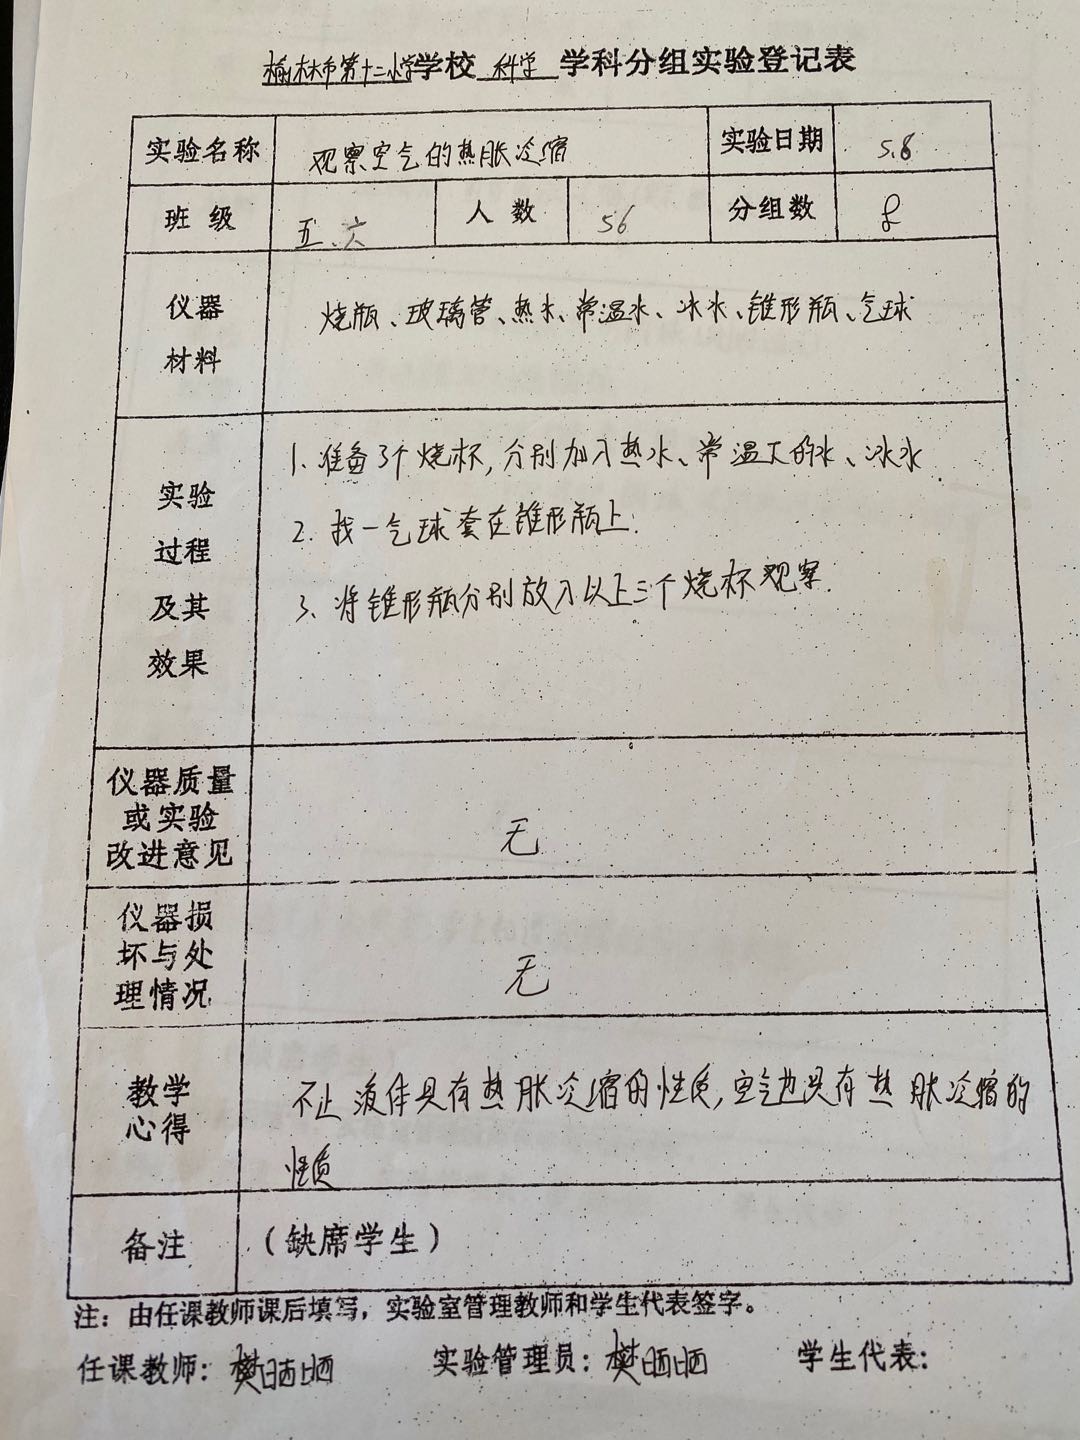 榆林市第十二小学学校 科学 学科分组实验登记表
实验名称 观察空气的热胀冷缩 实验日期 5.8
班 级 五.六 人 数 56 分组数 8
仪器
材料
烧瓶、玻璃管、热水、常温水、冰水、锥形瓶、气球
实验
过程
及其
效果
1. 准备3个烧杯,分别加入热水、常温下的水、冰水
2. 找一气球套在锥形瓶上.
3. 将锥形瓶分别放入以上三个烧杯观察.
仪器质量
或实验
改进意见
无
仪器损
坏与处
理情况
无
教学
心得
不止液体具有热胀冷缩的性质,空气也具有热胀冷缩的
性质
备注 （缺席学生）
注：由任课教师课后填写，实验室管理教师和学生代表签字。
任课教师：樊晒晒 实验管理员：樊晒晒 学生代表：